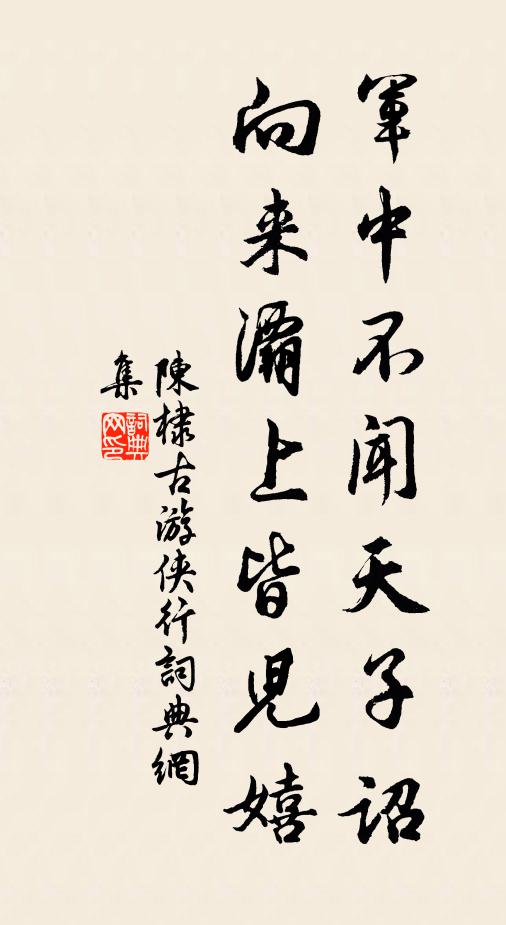 軍中不聞天子詔
向来灞上皆児嬉
陳棣古游俠行詞典網
集
詞典网印